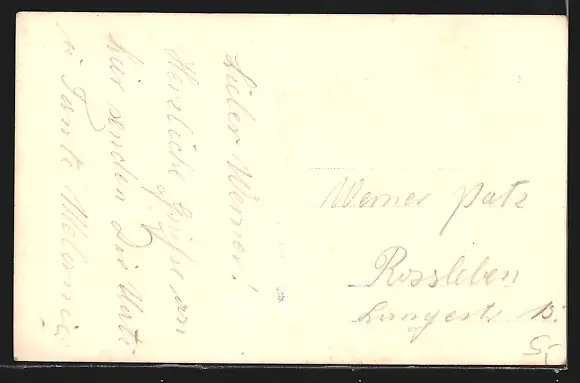 Lieber Werner!
Herzliche Grüße von
hier senden Dir Mutti
u Tante Melanie.
Werner Patz
Rossleben
Langestr. 13.